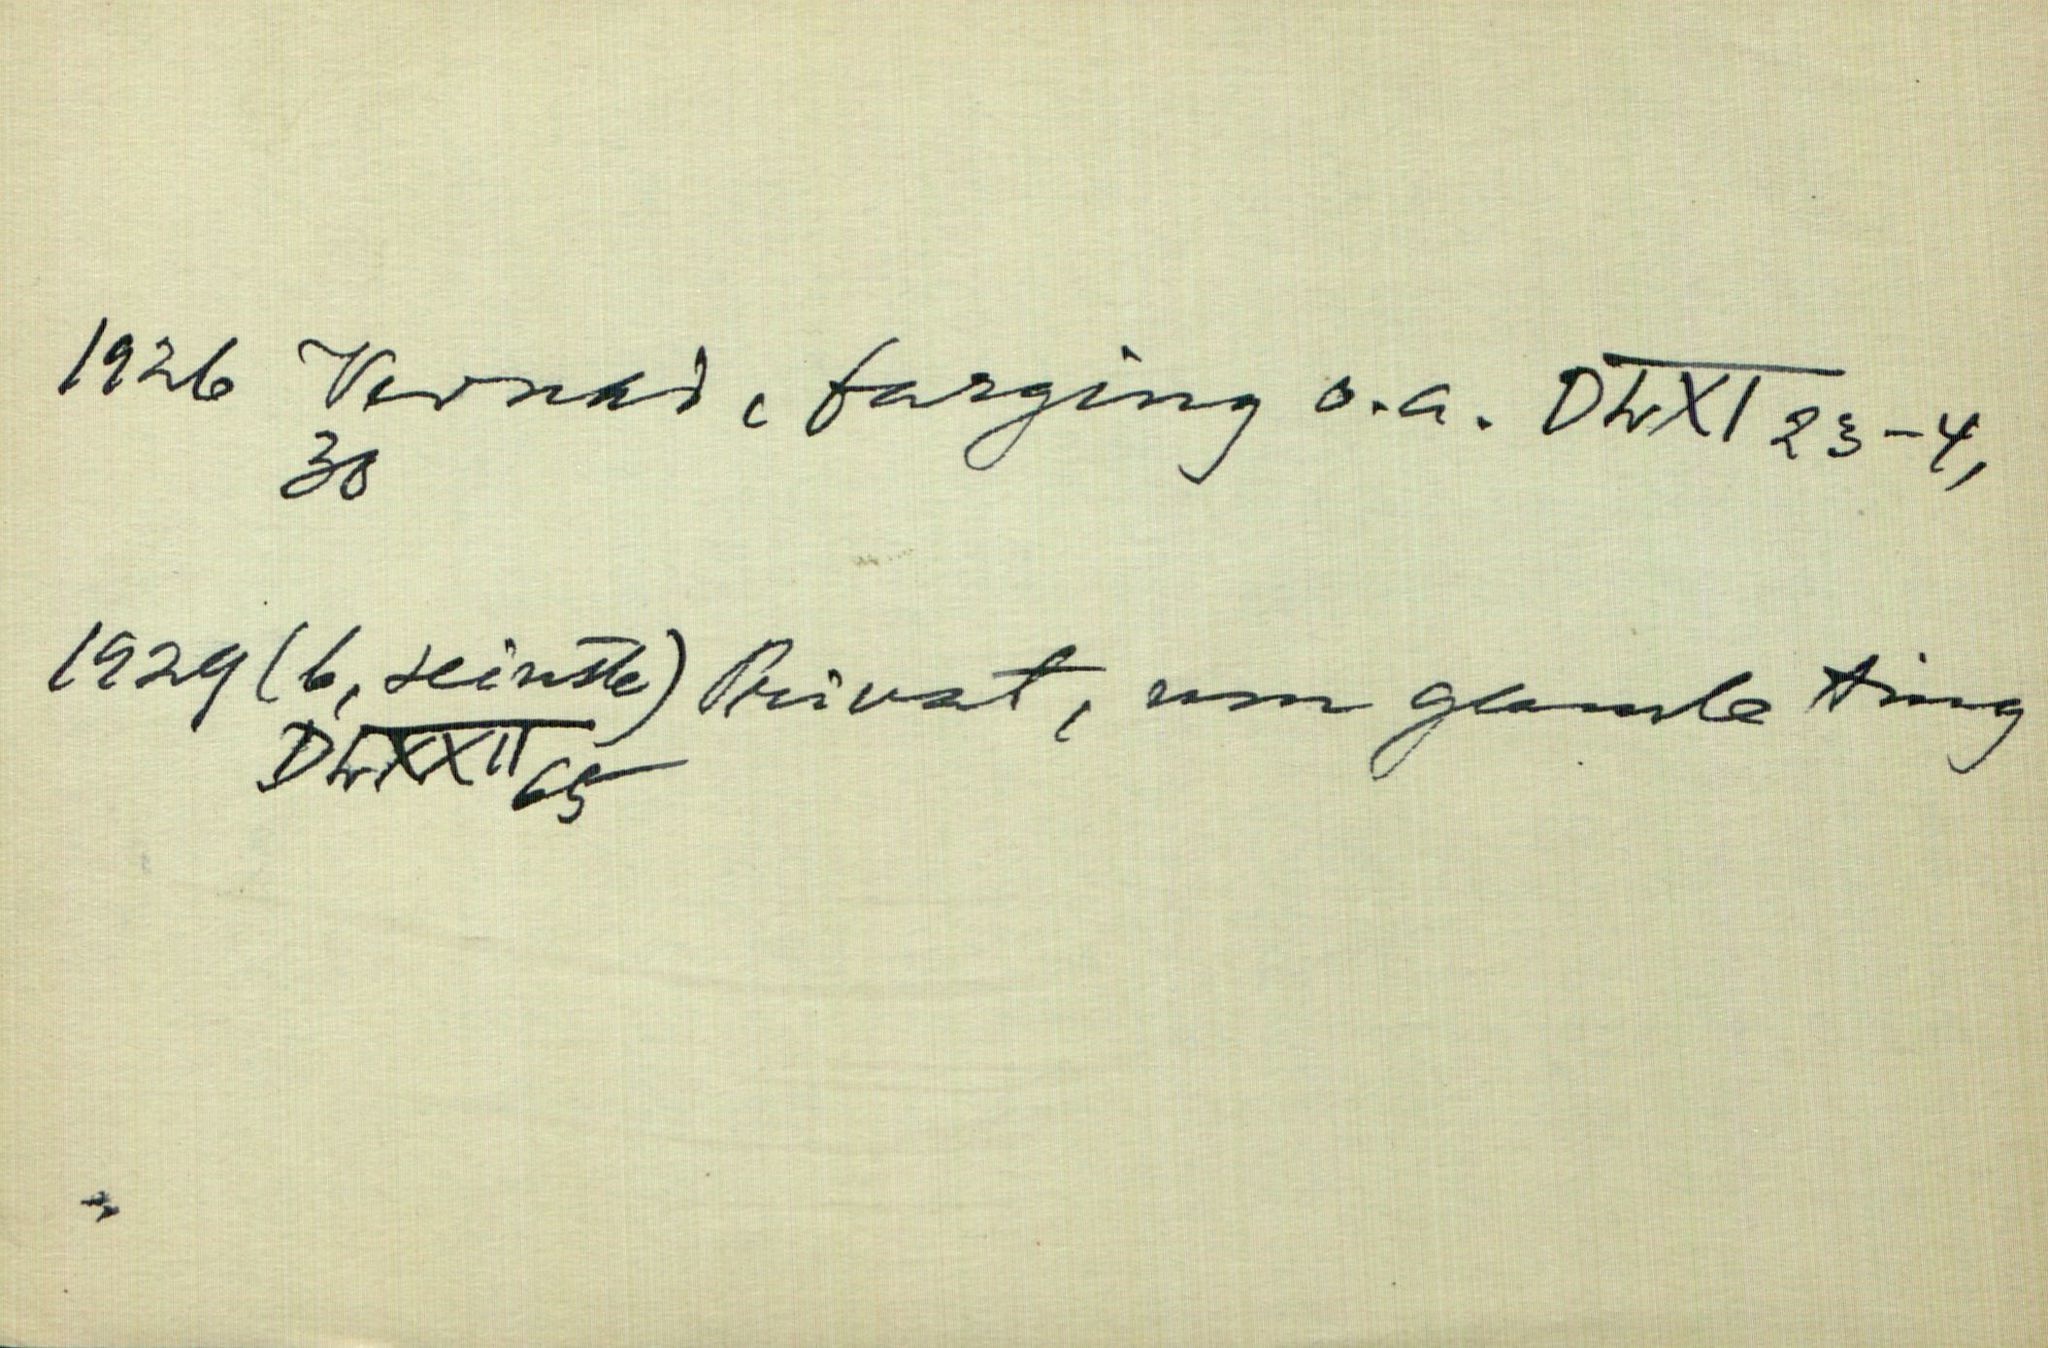 1926 Vevnad, farging o.a. DLXI 23-4,
30
1929 (b, seinste) Privat, um gamle ting
DLXXII 65